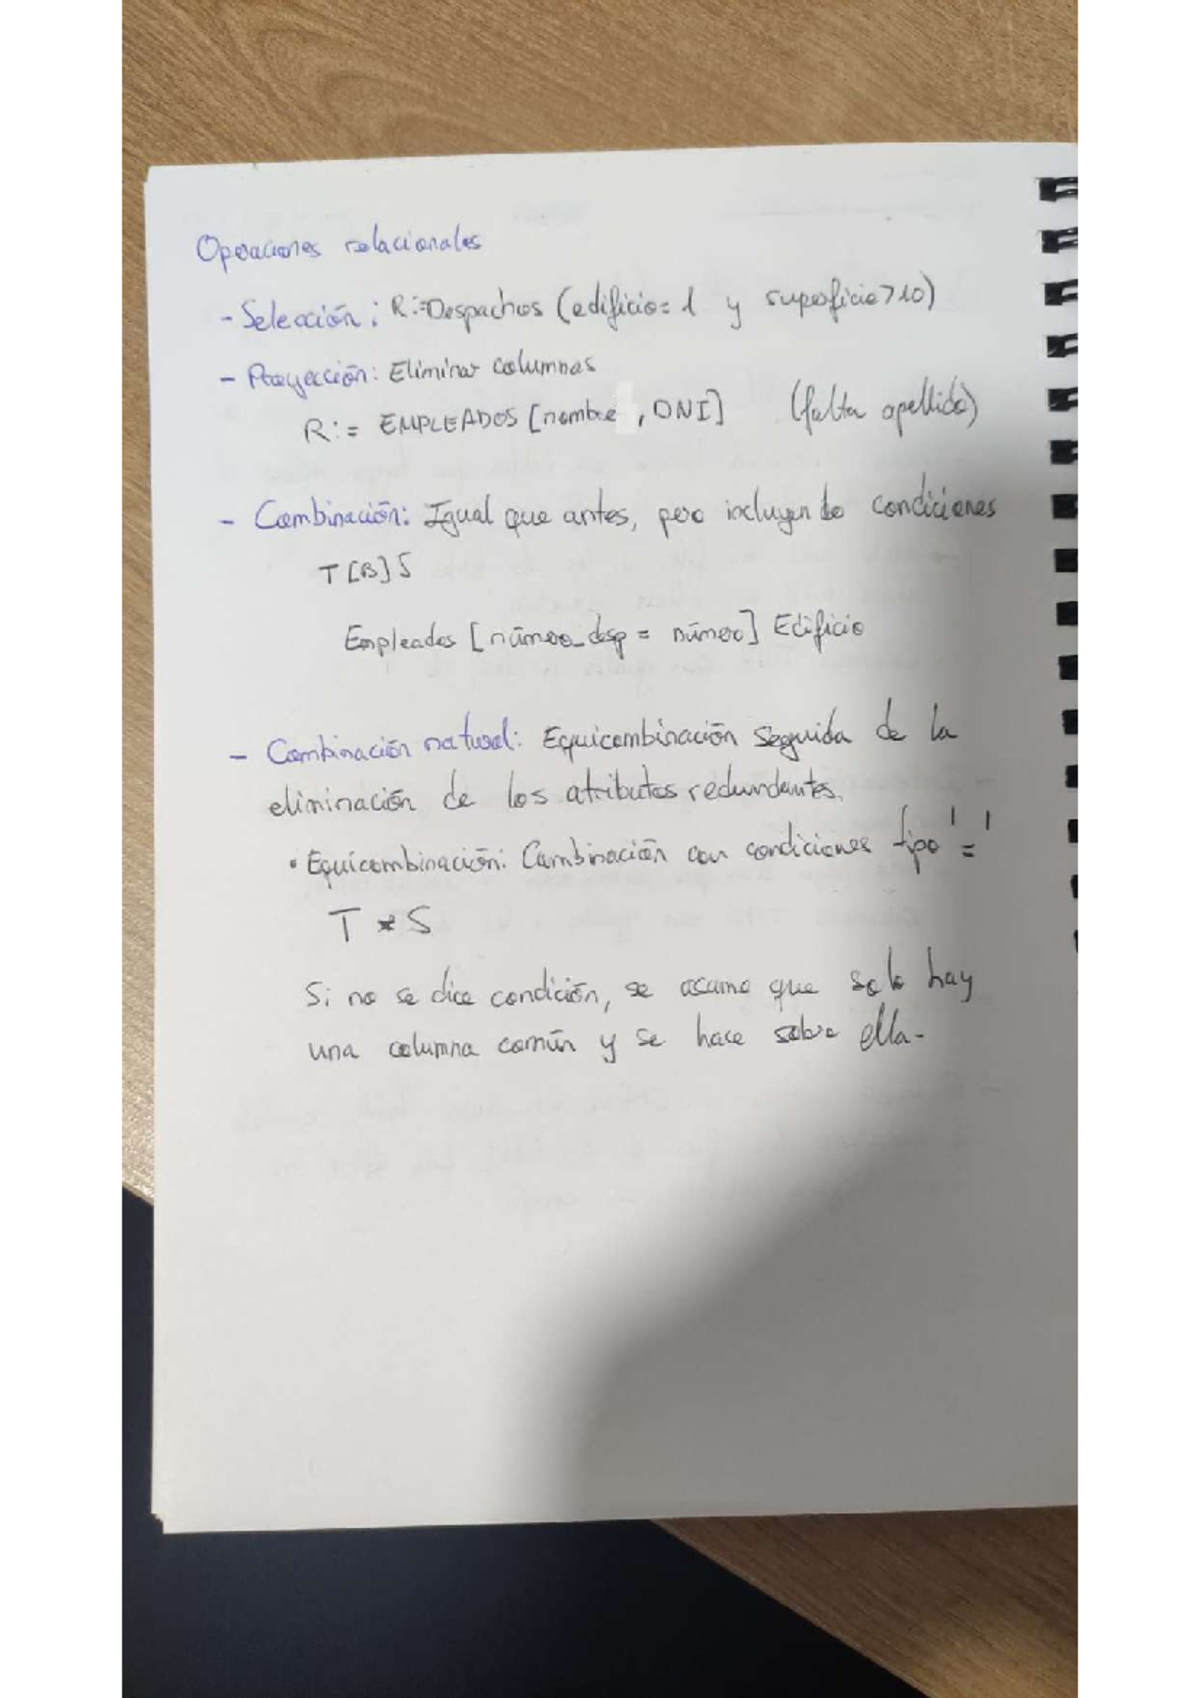 Operaciones relacionales
- Selección: R:=Despachos (edificio=1 y superficie>10)
- Proyección: Eliminar columnas
R:= EMPLEADOS [nombre, DNI] (falta apellido)
- Combinación: Igual que antes, pero incluyendo condiciones
T[B]S
Empleados [número_desp = número] Edificio
- Combinación natural: Equicombinación seguida de la
eliminación de los atributos redundantes.
• Equicombinación: Combinación con condiciones tipo '='
T * S
Si no se dice condición, se asume que solo hay
una columna común y se hace sobre ella.